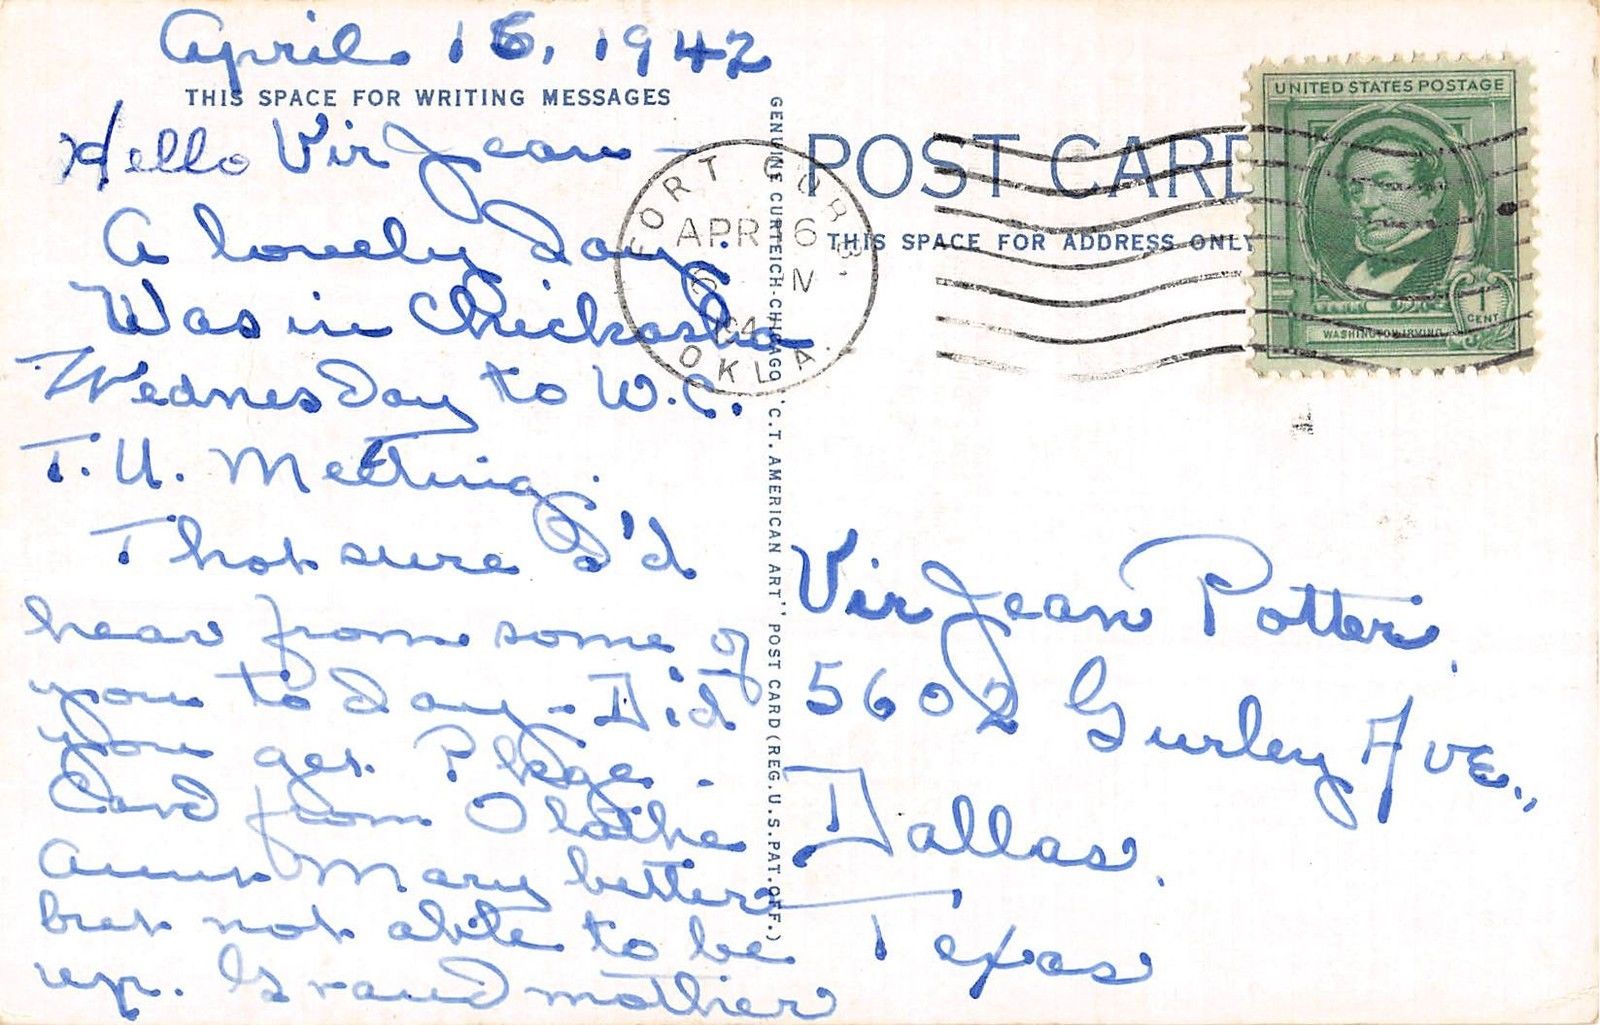 April 16, 1942
THIS SPACE FOR WRITING MESSAGES
Hello Vir Jean —
A lovely Day.
Was in Chickasha
Wednesday to W.C.
T.U. Meeting.
Thot sure I'd
hear from some of
you to day - Did
you get Pkge.
Card from Olathe
Aunt Mary better
but not able to be
up. Grandmother
GENUINE CURTEICH-CHICAGO "C.T. AMERICAN ART" POST CARD (REG. U.S. PAT. OFF.)
FORT COBB,
APR 16
OKLA.
POST CARD
THIS SPACE FOR ADDRESS ONLY
UNITED STATES POSTAGE
1
CENT
WASHINGTON IRVING
Vir Jean Potter,
5602 Gurley Ave.,
Dallas,
Texas